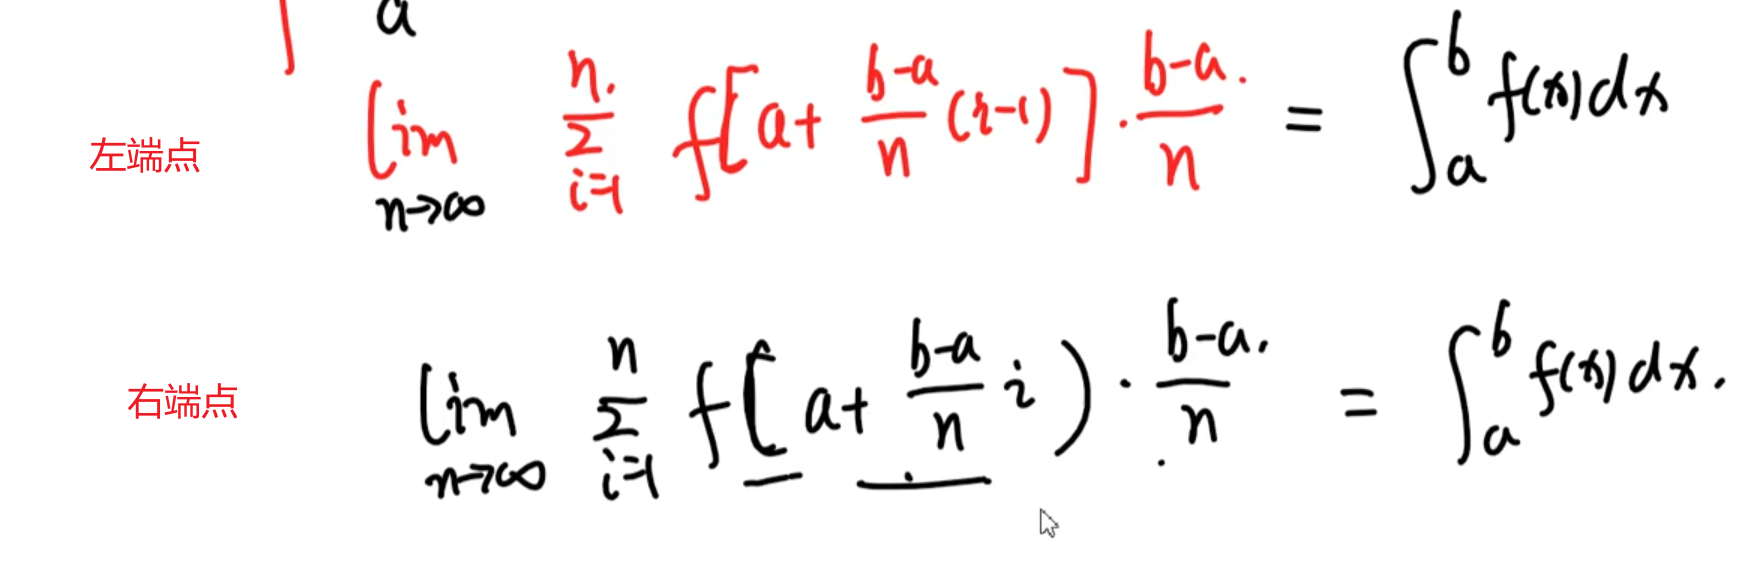 a
左端点 lim n→∞ n Σ i=1 f[a+ b-a/n (i-1)]·b-a/n = ∫ₐᵇ f(x)dx
右端点 lim n→∞ n Σ i=1 f(a+ b-a/n i)·b-a/n = ∫ₐᵇ f(x)dx.